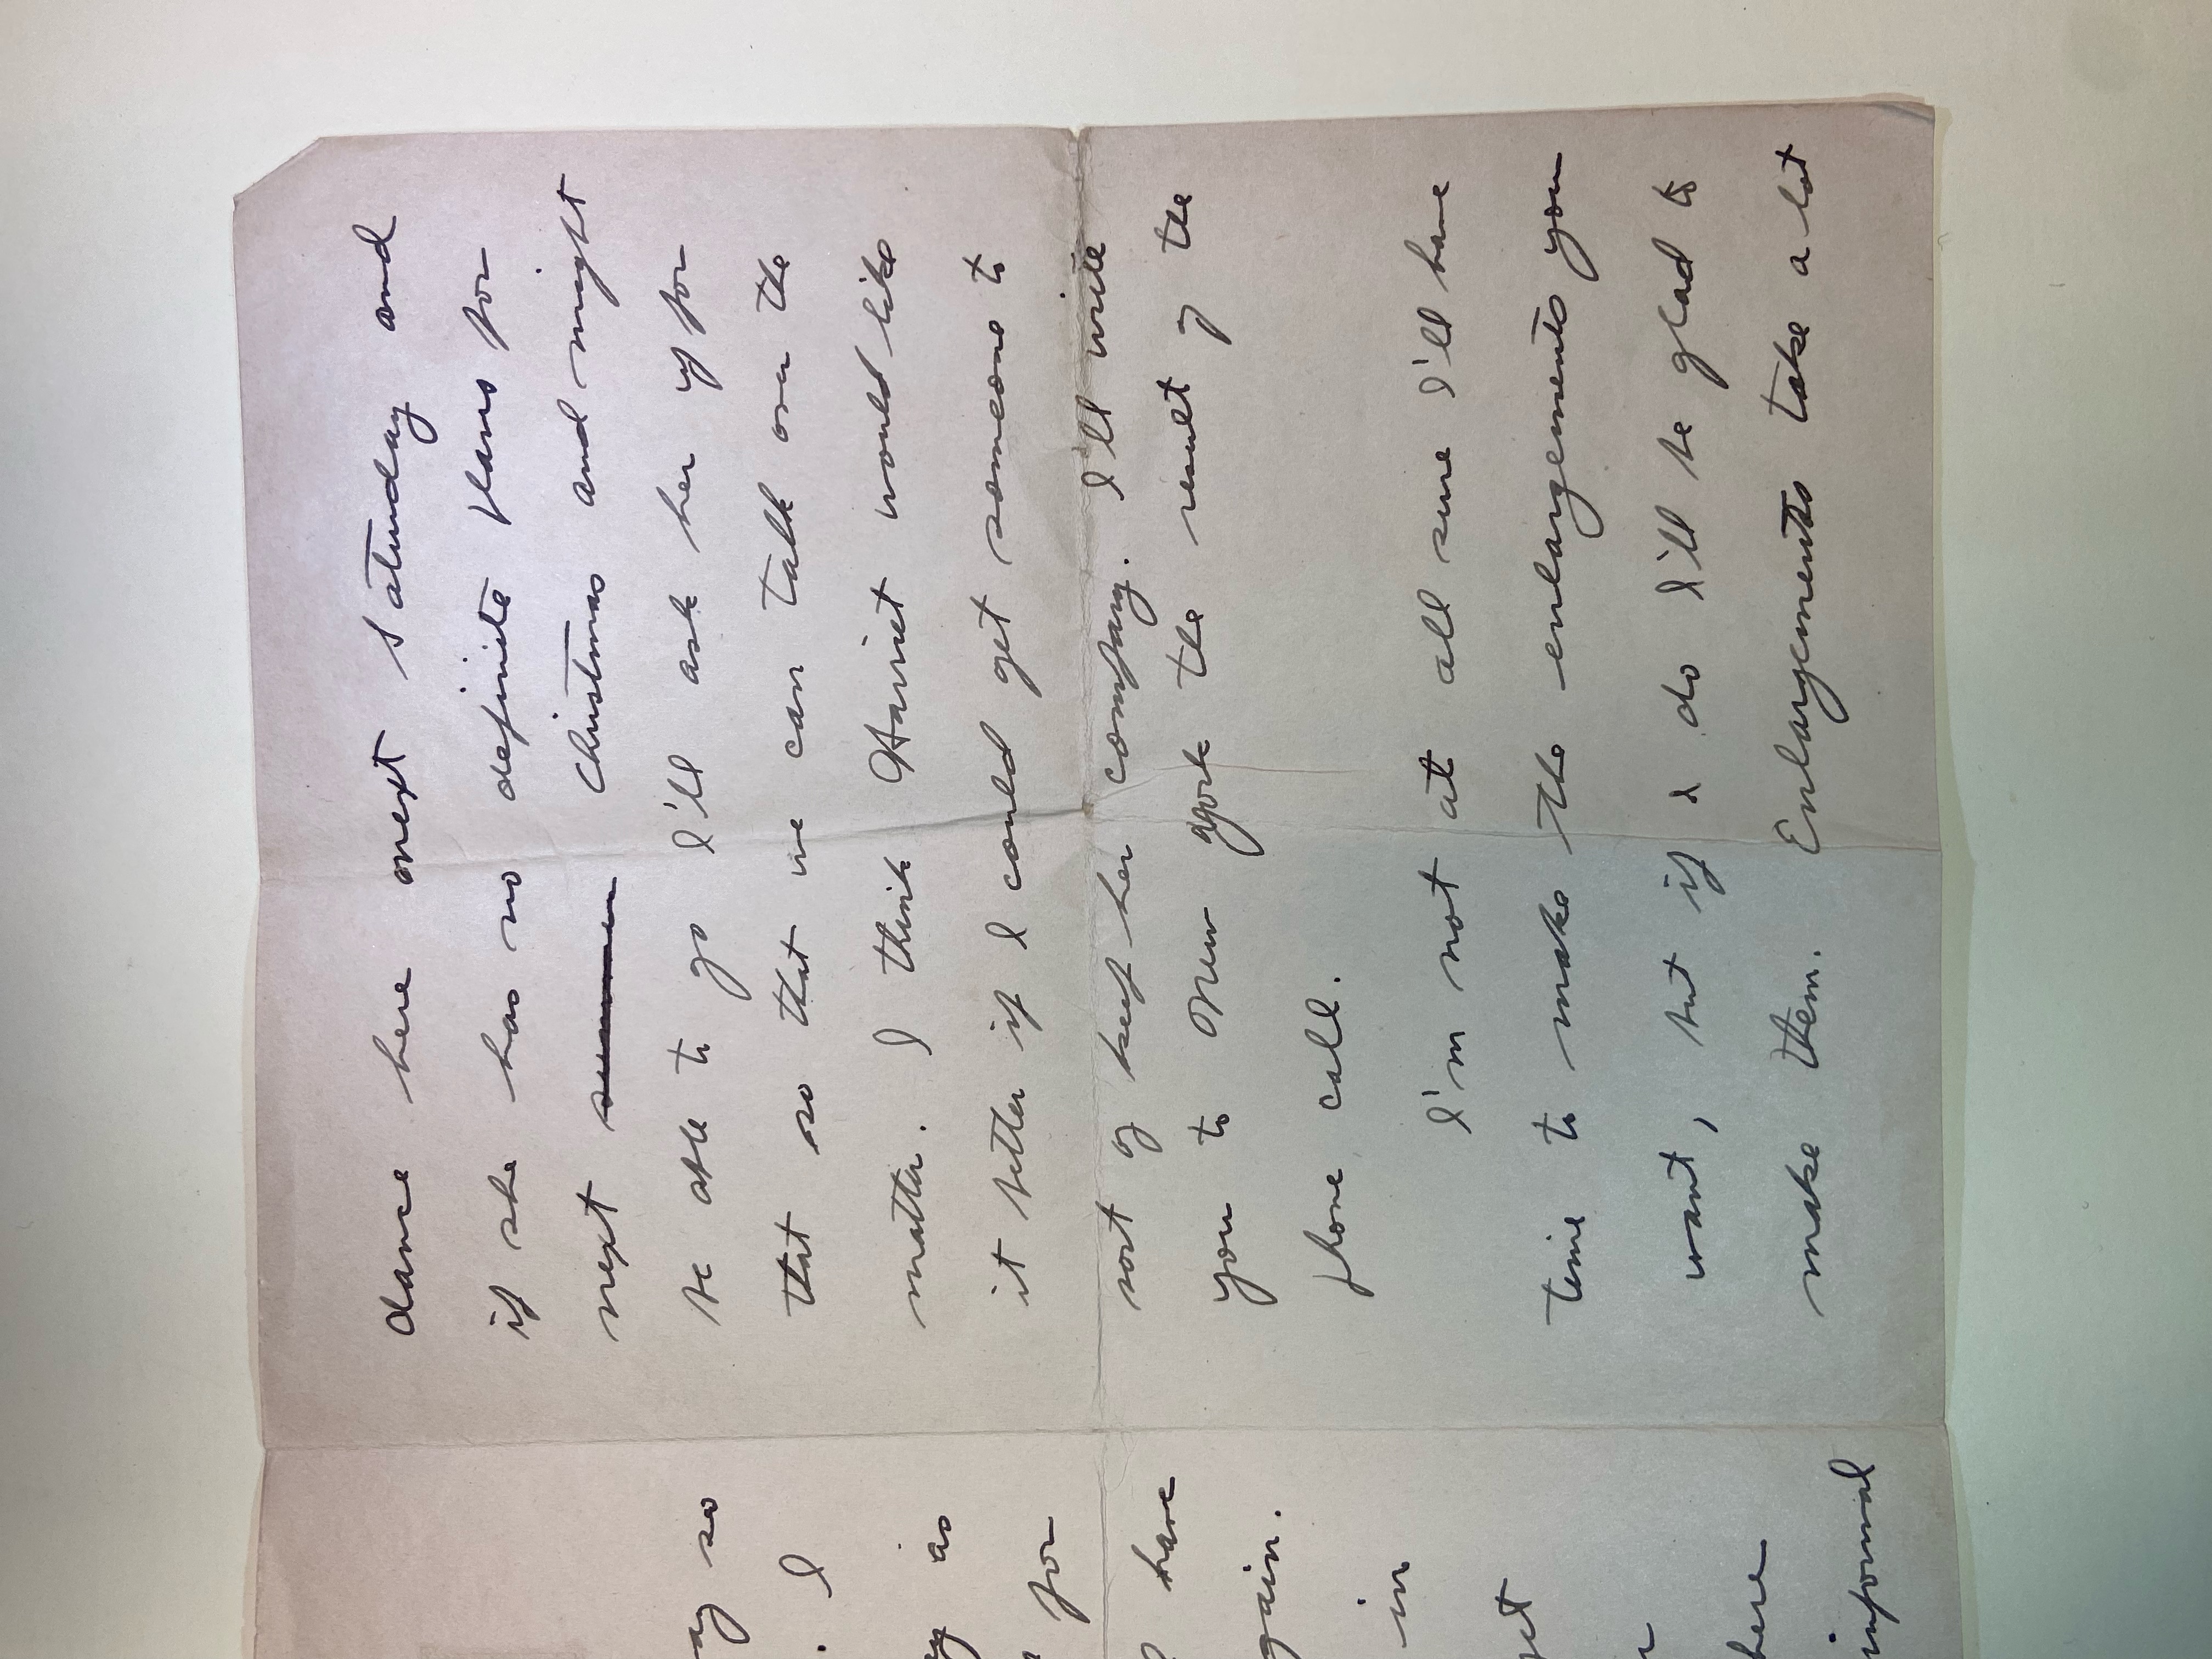 so
. I
as
for
have
gain.
in
get
here
informal
dance here next Saturday and
if she has no definite plans for
next summer Christmas and might
be able to go I'll ask her up for
that so that we can talk over the
matter. I think Harriet would like
it better if I could get someone to
sort of keep her company. I'll write
you to New York the result of the
phone call.
I'm not at all sure I'll have
time to make the enlargements you
want, but if I do I'll be glad to
make them. Enlargements take a lot